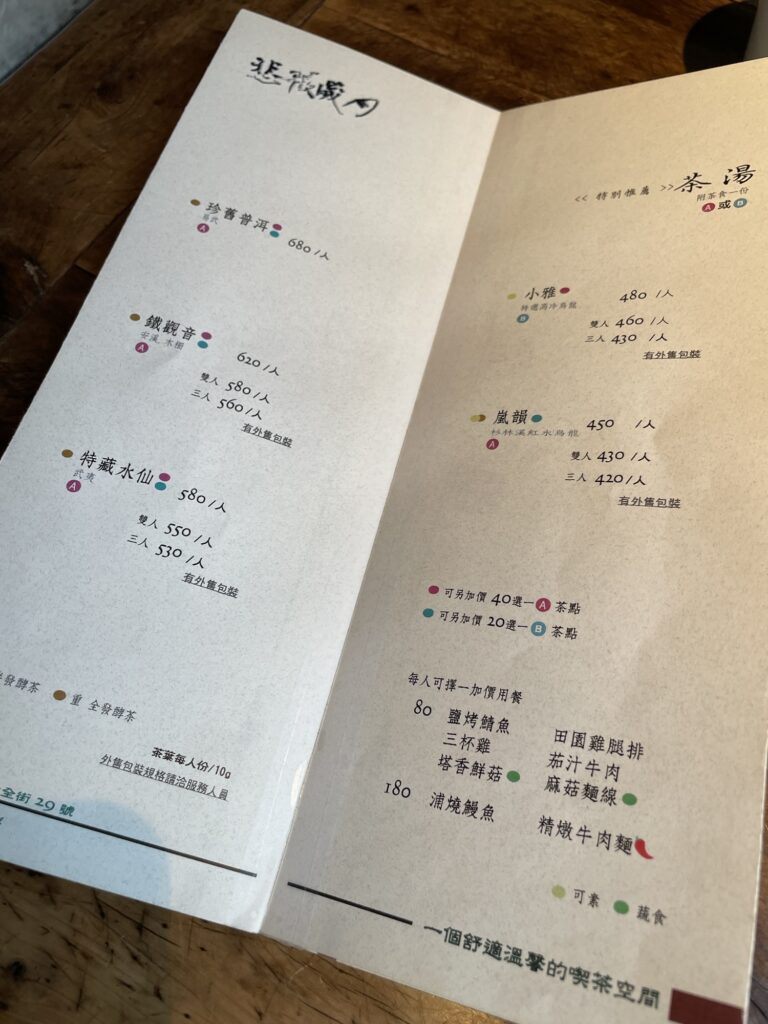 歲月
珍舊普洱 680/人
易武
A
鐵觀音 620/人
安溪 木柵
A
雙人 580/人
三人 560/人
有外售包裝
特藏水仙 580/人
武夷
A
雙人 550/人
三人 530/人
有外售包裝
發酵茶 重 全發酵茶
茶葉每人份/10g
外售包裝規格請洽服務人員
全街 29 號
<< 特別推薦 >> 茶湯
附茶食一份
A 或 B
小雅 480 /人
特選高冷烏龍
B
雙人 460 /人
三人 430 /人
有外售包裝
嵐韻 450 /人
杉林溪紅水烏龍
A
雙人 430 /人
三人 420 /人
有外售包裝
可另加價 40選一 A 茶點
可另加價 20選一 B 茶點
每人可擇一加價用餐
80 鹽烤鯖魚 田園雞腿排
三杯雞 茄汁牛肉
塔香鮮菇 麻菇麵線
180 浦燒鰻魚 精燉牛肉麵
可素 蔬食
一個舒適溫馨的喫茶空間